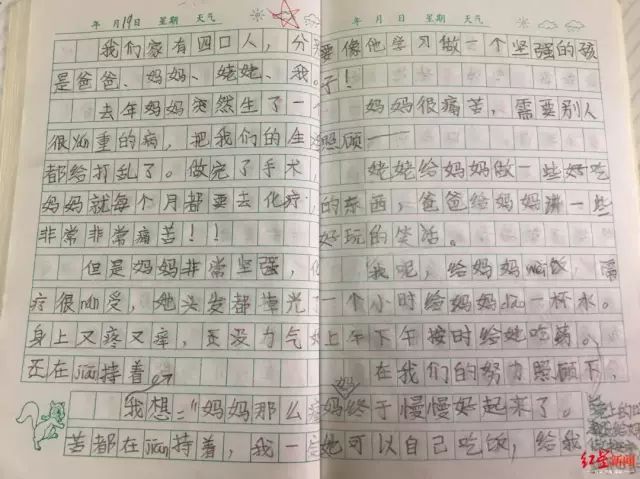 年 月19日 星期 天气
我们家有四口人，分别
是爸爸、妈妈、姥姥、我。
去年妈妈突然生了一个
很烦重的病，把我们的生活
都给打乱了。做完了手术，
妈妈就每个月都要去化疗，
非常非常痛苦！！
但是妈妈非常坚强，化
疗很nán受，她头发都掉光了
身上又疼又痒，还没力气，
还在jiān持着
我想="妈妈那么痛
苦都在jiān持着，我一定
年 月 日 星期 天气
要像他学习做一个坚强的孩
子！
妈妈很痛苦，需要别人
照顾
姥姥给妈妈做一些好吃
的东西，爸爸给妈妈讲一些
好玩的笑话。
我呢，给妈妈喊饭，隔
一个小时给妈妈dào一杯水。
上午下午按时给她吃药。
在我们的努力照顾下，
妈妈终于慢慢好起来了。
她可以自己吃饭，给我
红星新闻